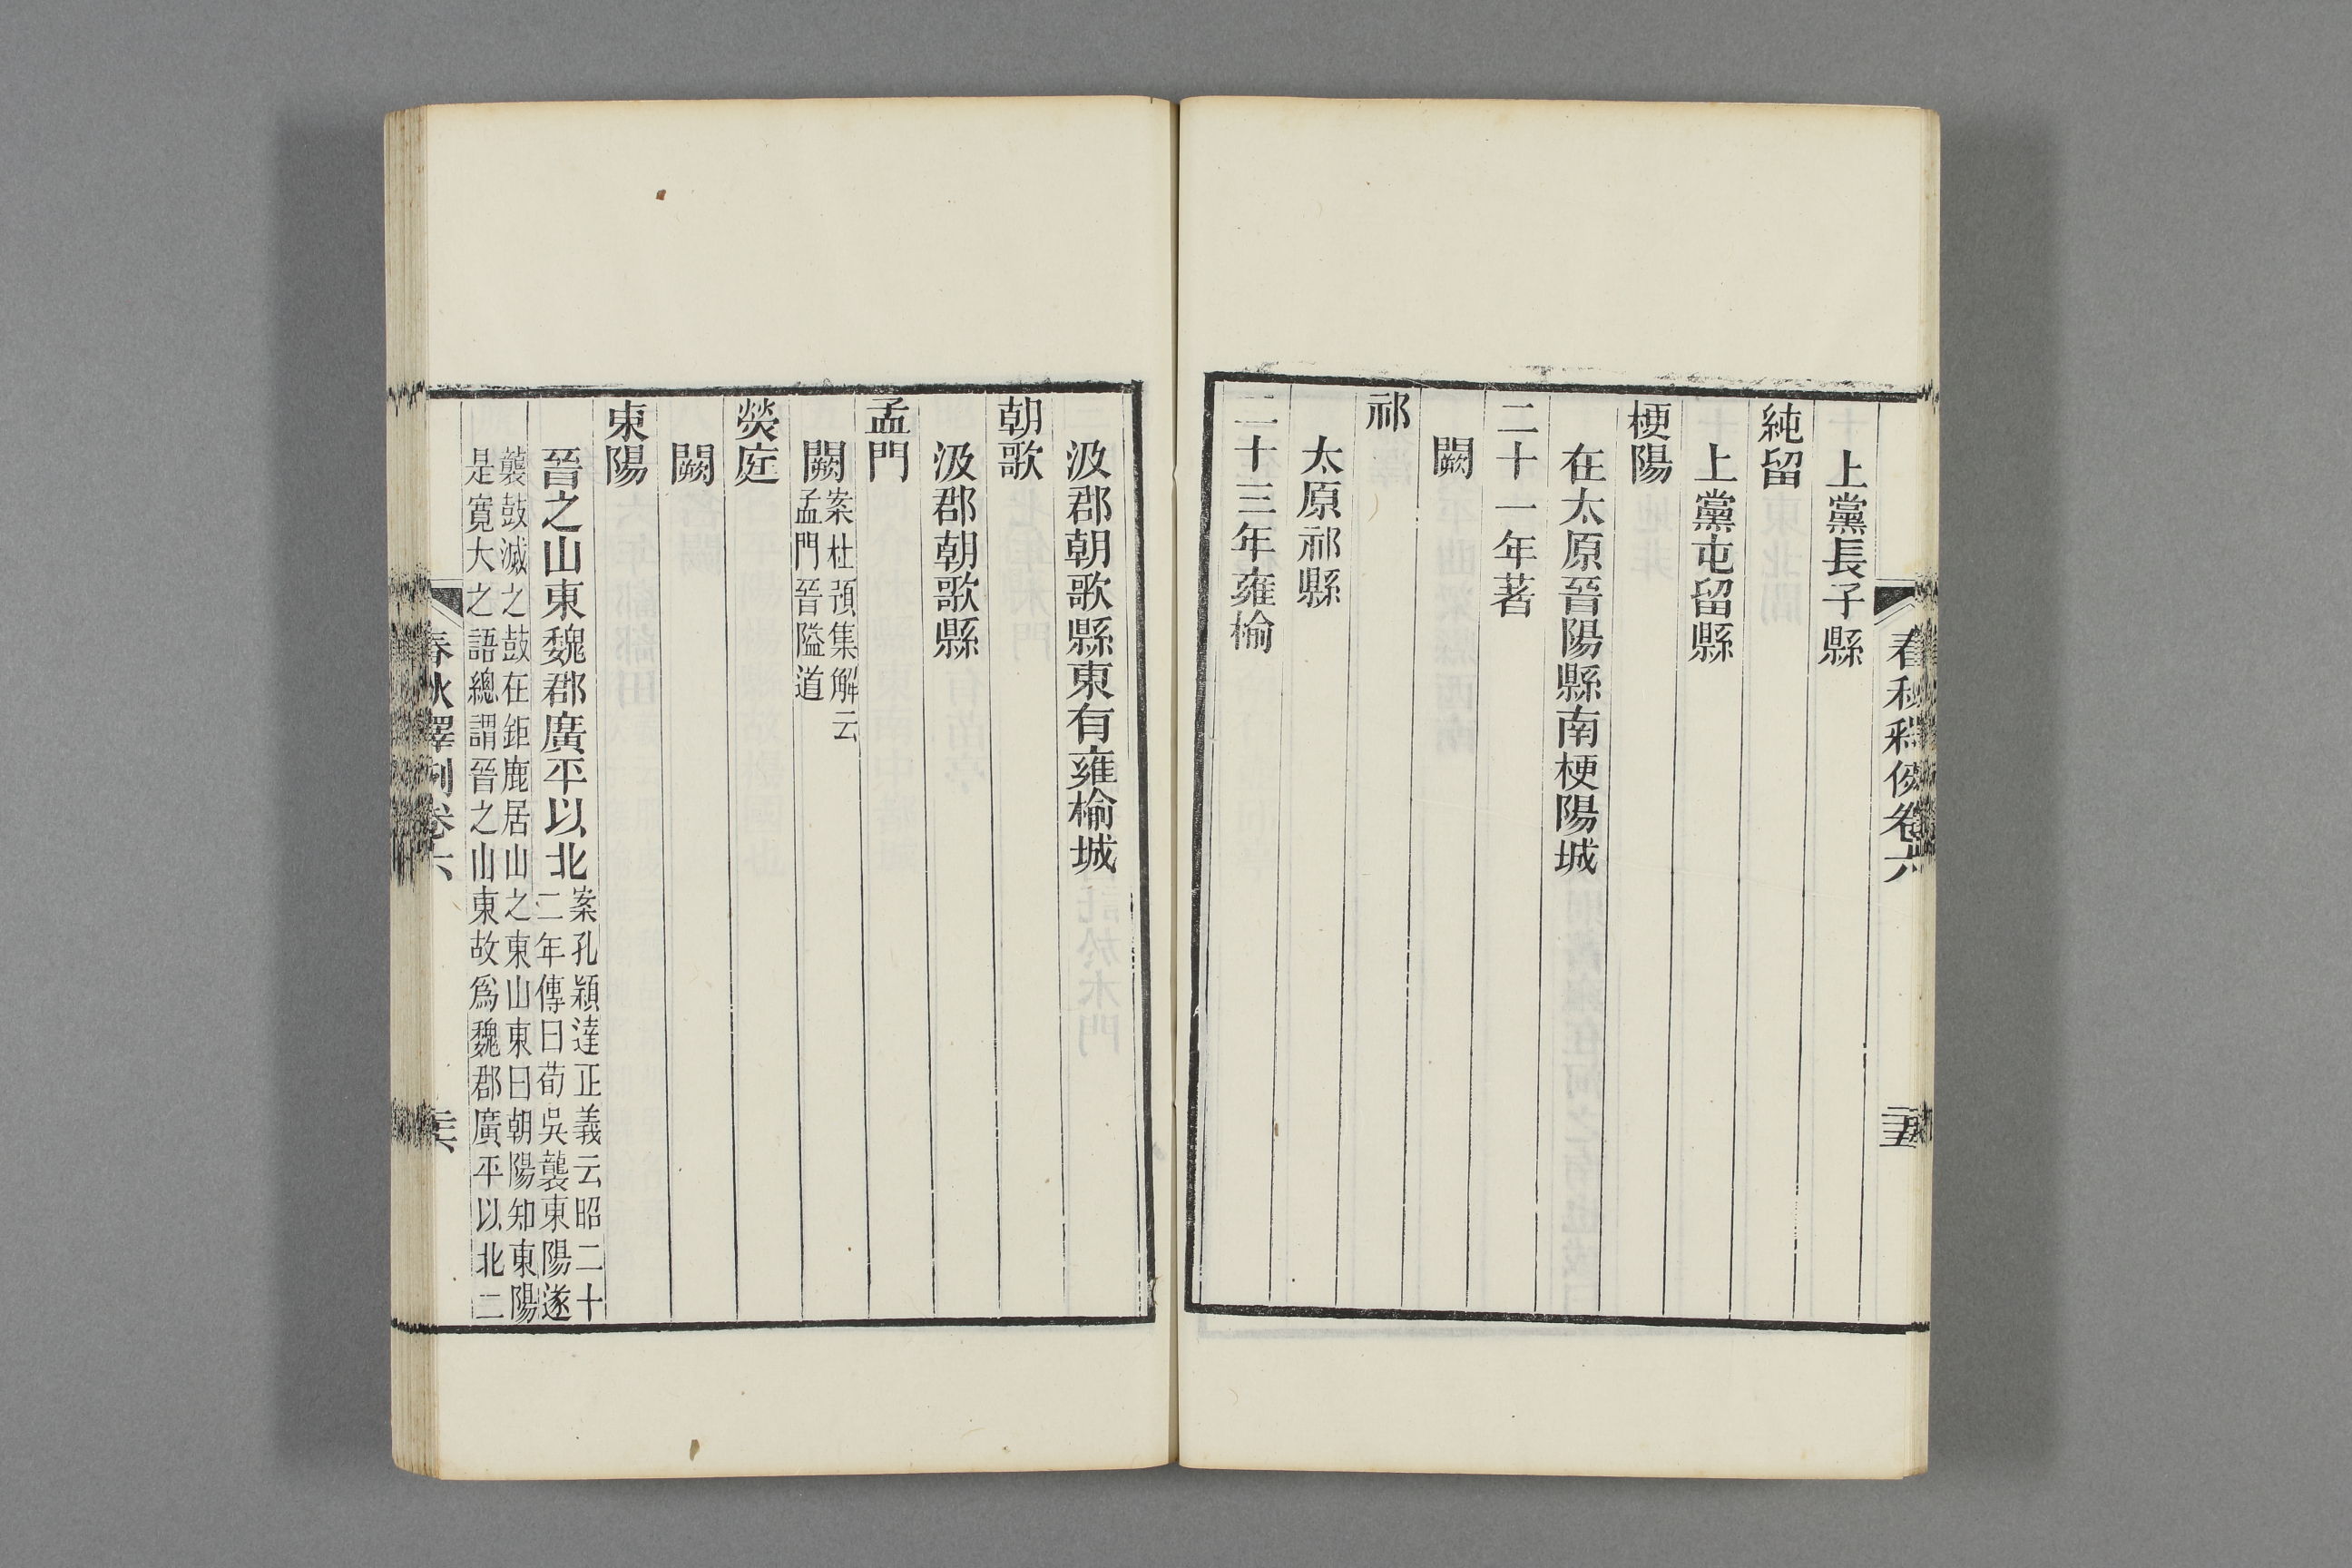 上黨長子縣
純留
上黨屯留縣
梗陽
在太原晉陽縣南梗陽城
二十一年著
闕
祁
太原祁縣
二十三年雍榆
汲郡朝歌縣東有雍榆城
朝歌
汲郡朝歌縣
孟門
闕案杜預集解云
孟門晉隘道
熒庭
闕
東陽
晉之山東魏郡廣平以北案孔穎達正義云昭二十
二年傳曰荀吳襲東陽遂
襲鼓滅之鼓在鉅鹿居山之東山東曰朝陽知東陽
是寬大之語總謂晉之山東故爲魏郡廣平以北二
春秋釋例卷六